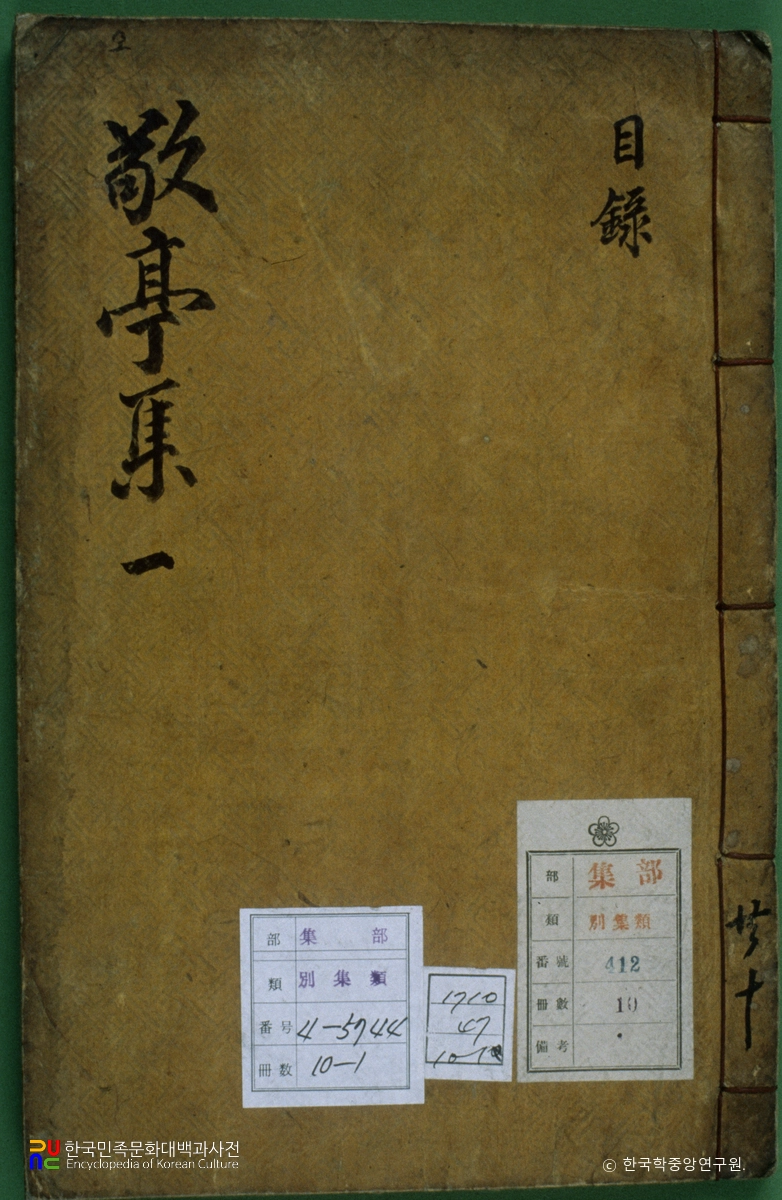 目錄
敬亭集 一
共十
部 集部
類 別集類
番號 412
冊數 10
備考
部 集部
類 別集類
番号 4-5744
冊数 10-1
1710
47
한국민족문화대백과사전
Encyclopedia of Korean Culture
© 한국학중앙연구원.